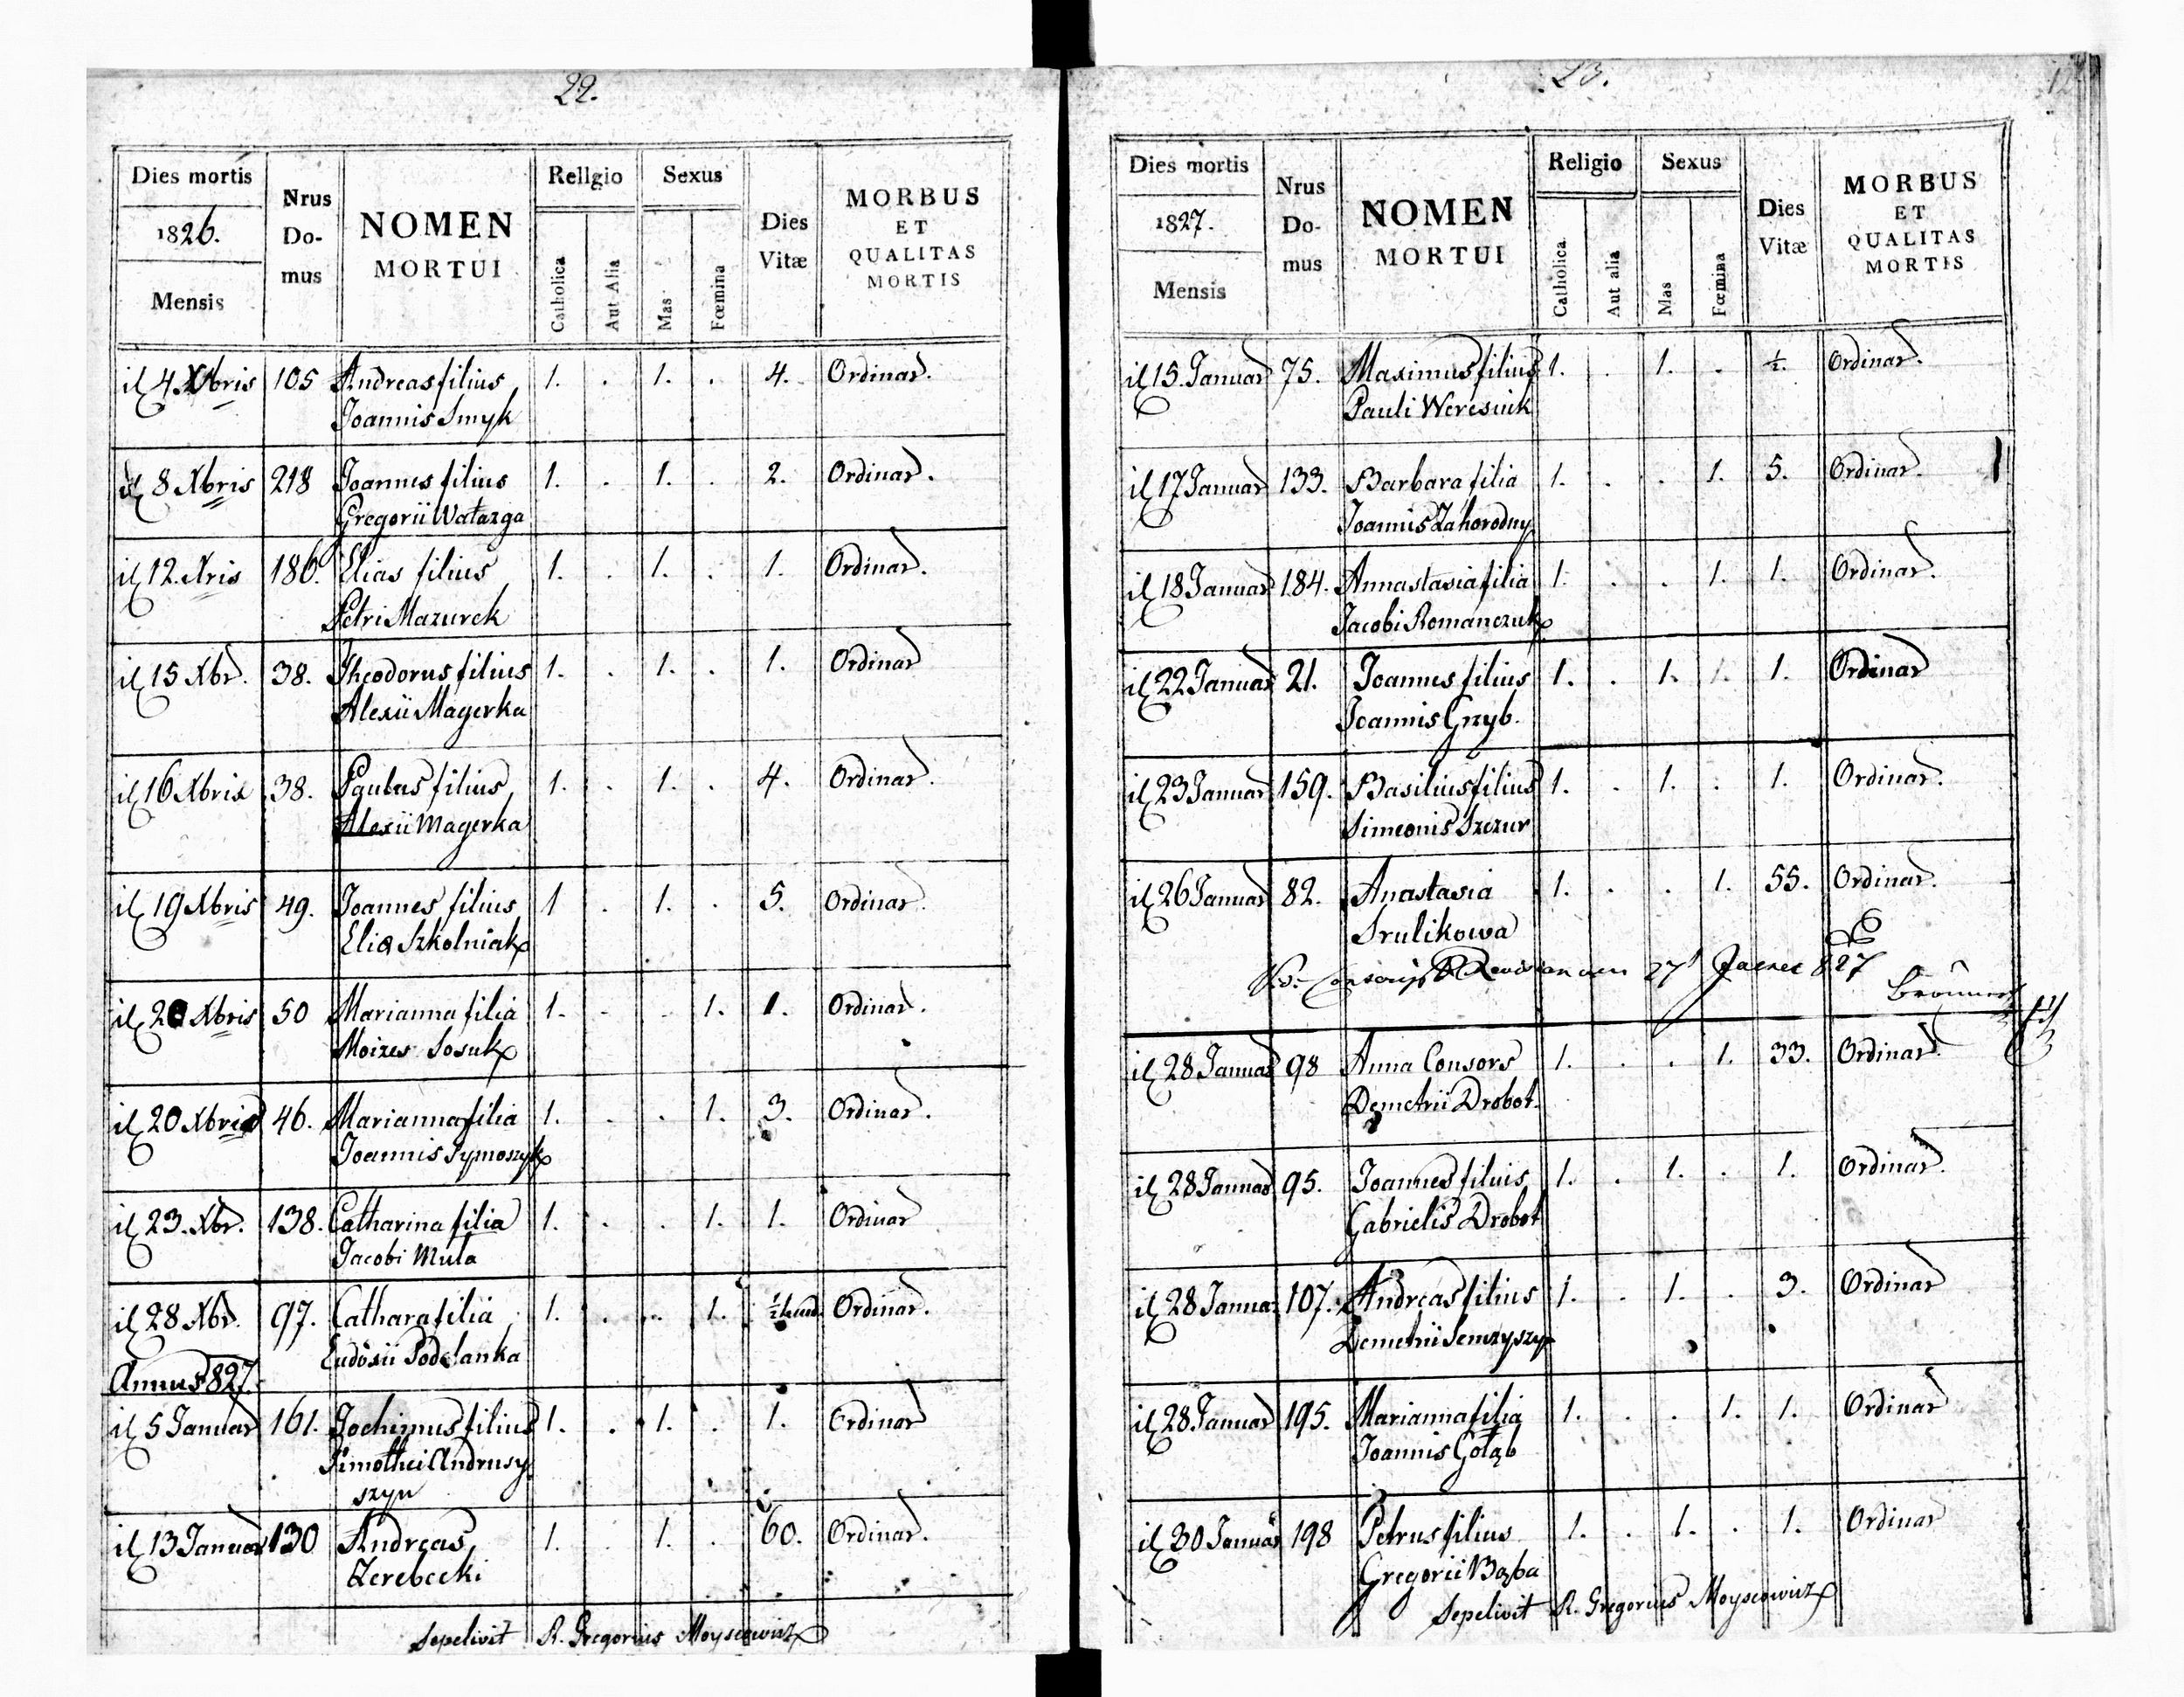 22.
Dies mortis
1826.
Mensis
Nrus
Do-
mus
NOMEN
MORTUI
Religio
Catholica
Aut Alia
Sexus
Mas
Fœmina
Dies
Vitæ
MORBUS
ET
QUALITAS
MORTIS
4 Xbris 105 Andreas filius 1. . 1. . 4. Ordinar.
Joannis Smyk
8 Xbris 218 Joannes filius 1. . 1. . 2. Ordinar.
Gregorii Watazga
12. Xris 186. Elias filius 1. . 1. . 1. Ordinar.
Petri Mazurek
15 Xbr. 38. Theodorus filius 1. . 1. . 1. Ordinar
Alexii Magerka
16 Xbris 38. Paulus filius 1. . 1. . 4. Ordinar.
Alexii Magerka
19 Xbris 49. Joannes filius 1 . 1. . 5. Ordinar.
Eliæ Szkolniak
20 Xbris 50 Marianna filia 1. . . 1. 1. Ordinar.
Moizes Sosuk
20 Xbris 46. Marianna filia 1. . . 1. 3. Ordinar.
Joannis Symoszyk
23. Xbr. 138. Catharina filia 1. . . 1. 1. Ordinar
Jacobi Mula
28 Xbr. 97. Cathara filia 1. . . 1. ½ Ordinar.
Eudosii Podolanka
Annus 827.
5 Januar 161. Jochimus filius 1. . 1. . 1. Ordinar
Timothei Andrusy
szyn
13 Januar 130 Andreas 1. . 1. . 60. Ordinar.
Zerebecki
Sepelivit R. Gregorius Moyseowicz
23.
Dies mortis
1827.
Mensis
Nrus
Do-
mus
NOMEN
MORTUI
Religio
Catholica.
Aut alia
Sexus
Mas
Fœmina
Dies
Vitæ
MORBUS
ET
QUALITAS
MORTIS
15. Januar 75. Maximus filius 1. . 1. . ½. Ordinar.
Pauli Weresiuk
17 Januar 133. Barbara filia 1. . . 1. 5. Ordinar.
Joannis Zahorodny
18 Januar 184. Annastasia filia 1. . . 1. 1. Ordinar.
Jacobi Romanczuk
22 Januar 21. Joannes filius 1. . 1. 1. 1. Ordinar
Joannis Grzyb.
23 Januar 159. Basilius filius 1. . 1. . 1. Ordinar.
Simeonis Szczur
26 Januar 82. Anastasia 1. . . 1. 55. Ordinar.
Srulikowa
27 827
28 Januar 98 Anna Consors 1. . . 1. 33. Ordinar.
Demetrii Drobot.
28 Januar 95. Joannes filius 1. . 1. . 1. Ordinar.
Gabrielis Drobot
28 Januar 107. Andreas filius 1. . 1. . 3. Ordinar
Demetrii Semzyszyn
28 Januar 195. Marianna filia 1. . . 1. 1. Ordinar
Joannis Gołąb
30 Januar 198 Petrus filius 1. . 1. . 1. Ordinar
Gregorii Bąba
Sepelivit R. Gregorius Moyseowicz